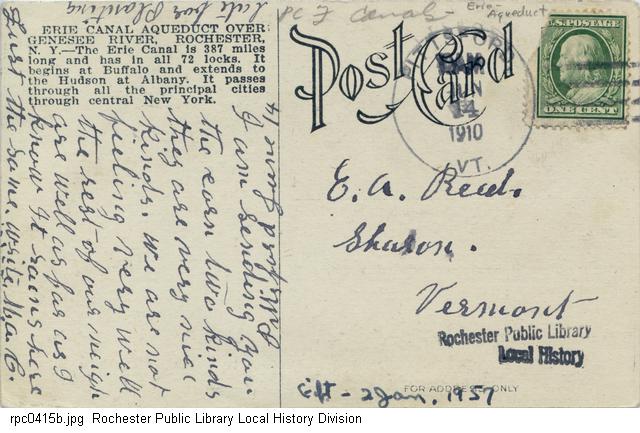 PC I Canals - Erie - Aqueduct
ERIE CANAL AQUEDUCT OVER
GENESEE RIVER, ROCHESTER,
N. Y.—The Erie Canal is 387 miles
long and has in all 72 locks. It
begins at Buffalo and extends to
the Hudson at Albany. It passes
through all the principal cities
through central New York.
Post Card
JUN
14
1910
VT.
U.S. POSTAGE
ONE CENT
June 14
I am sending you
the corn two kinds
they are very nice
kinds. We are not
feeling very well
the rest of our neigh
are well as far as I
know It rains here
Just the same. Write, Ma C.
late for Planting
E. A. Reed.
Sharon.
Vermont
Rochester Public Library
Local History
FOR ADDRESS ONLY
Gift - 2 Jan, 1957
rpc0415b.jpg Rochester Public Library Local History Division